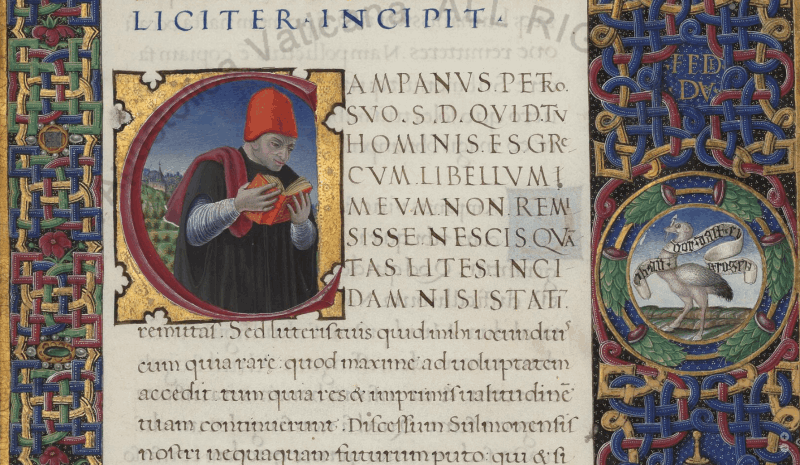 LICITER·INCIPIT·
CAMPANVS·PETRO·
SVO·S·D·QVID·TV
HOMINIS·ES·GRE
CVM·LIBELLVM
MEVM·NON·REMI
SISSE·NESCIS·QVA
TAS·LITES·INCI
DAM·NISI·STATI
remittas. Sed litteris tuis quid mihi iocundius
cum quia rarę: quod maxime ad uoluptatem
accedit: tum quia res & imprimis ualitudinẽ
tuam continuerunt. Discessum Sulmonensis
nostri nequaquam futurum puto: qui & si
FED
DVX